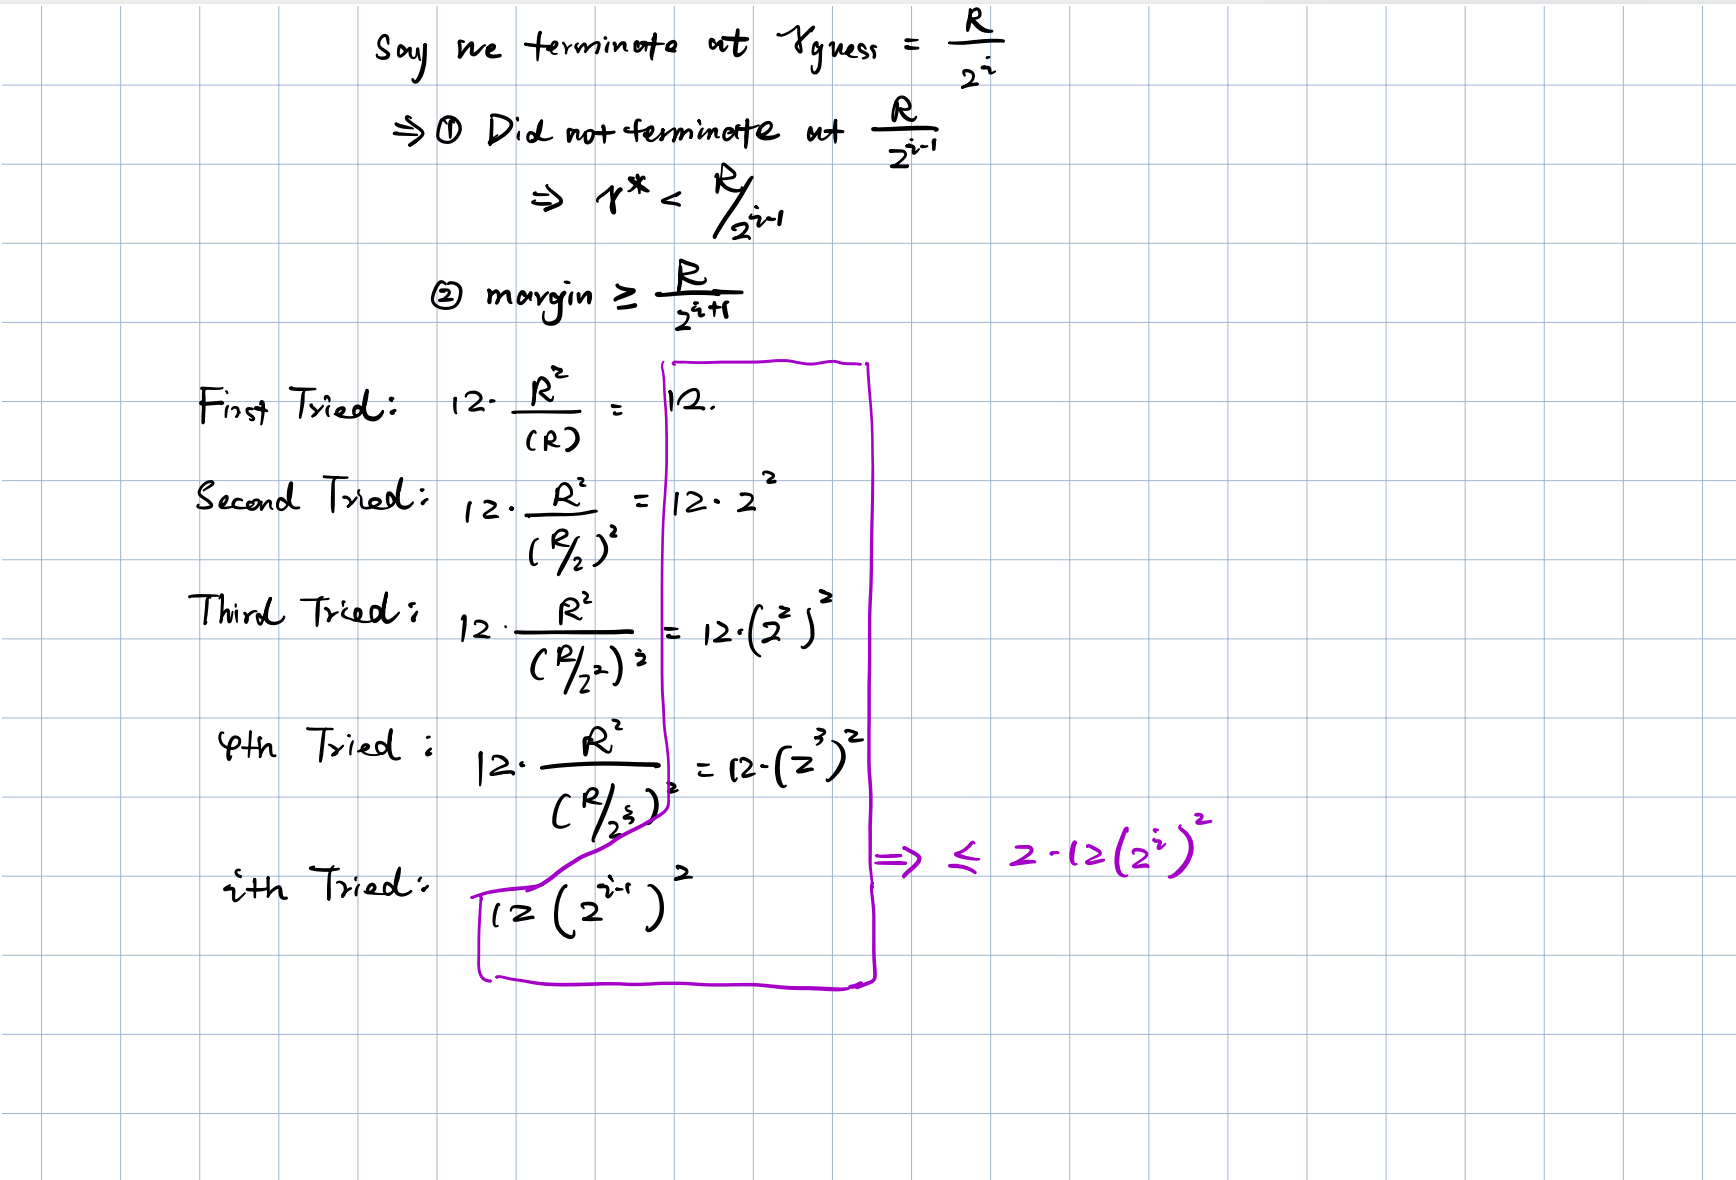 Say we terminate at γguess = R/2^i
⇒ ① Did not terminate at R/2^(i-1)
⇒ γ* < R/2^(i-1)
② margin ≥ R/2^(i+1)
First Tried: 12· R²/(R) = 12.
Second Tried: 12· R²/(R/2)² = 12·2²
Third Tried: 12· R²/(R/2²)² = 12·(2²)²
4th Tried: 12· R²/(R/2³)² = 12·(2³)²
ith Tried: 12(2^(i-1))²
⇒ ≤ 2·12(2^i)²